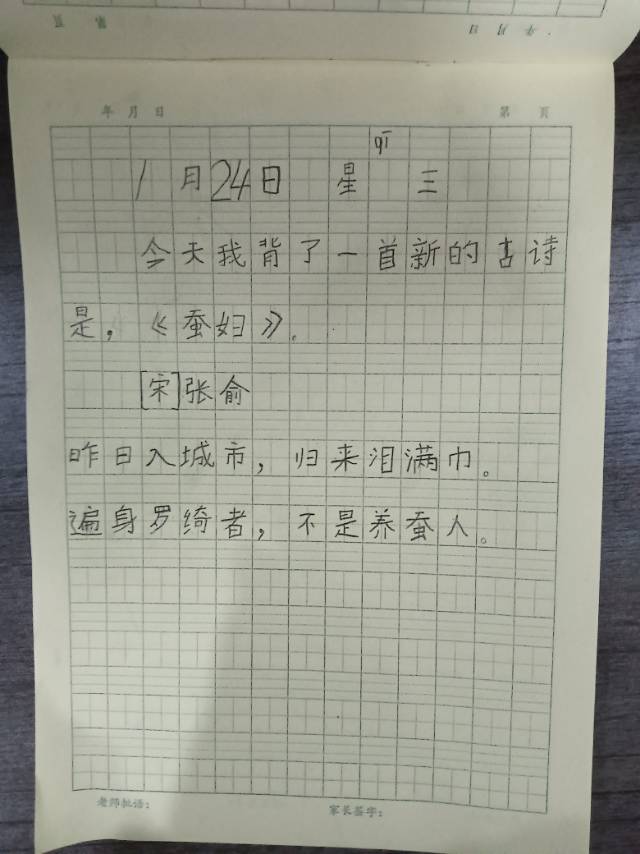 年 月 日 第 页
年 月 日 第 页
qī
1月24日 星 三
今天我背了一首新的古诗
是，《蚕妇》。
[宋]张俞
昨日入城市，归来泪满巾。
遍身罗绮者，不是养蚕人。
老师批语： 家长签字：